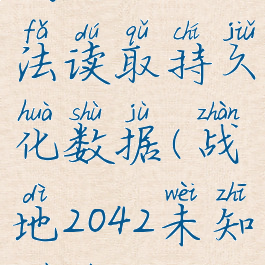 fǎ dú qǔ chí jiǔ
法读取持久
huà shù jù zhàn
化数据(战
dì wèi zhī
地2042未知